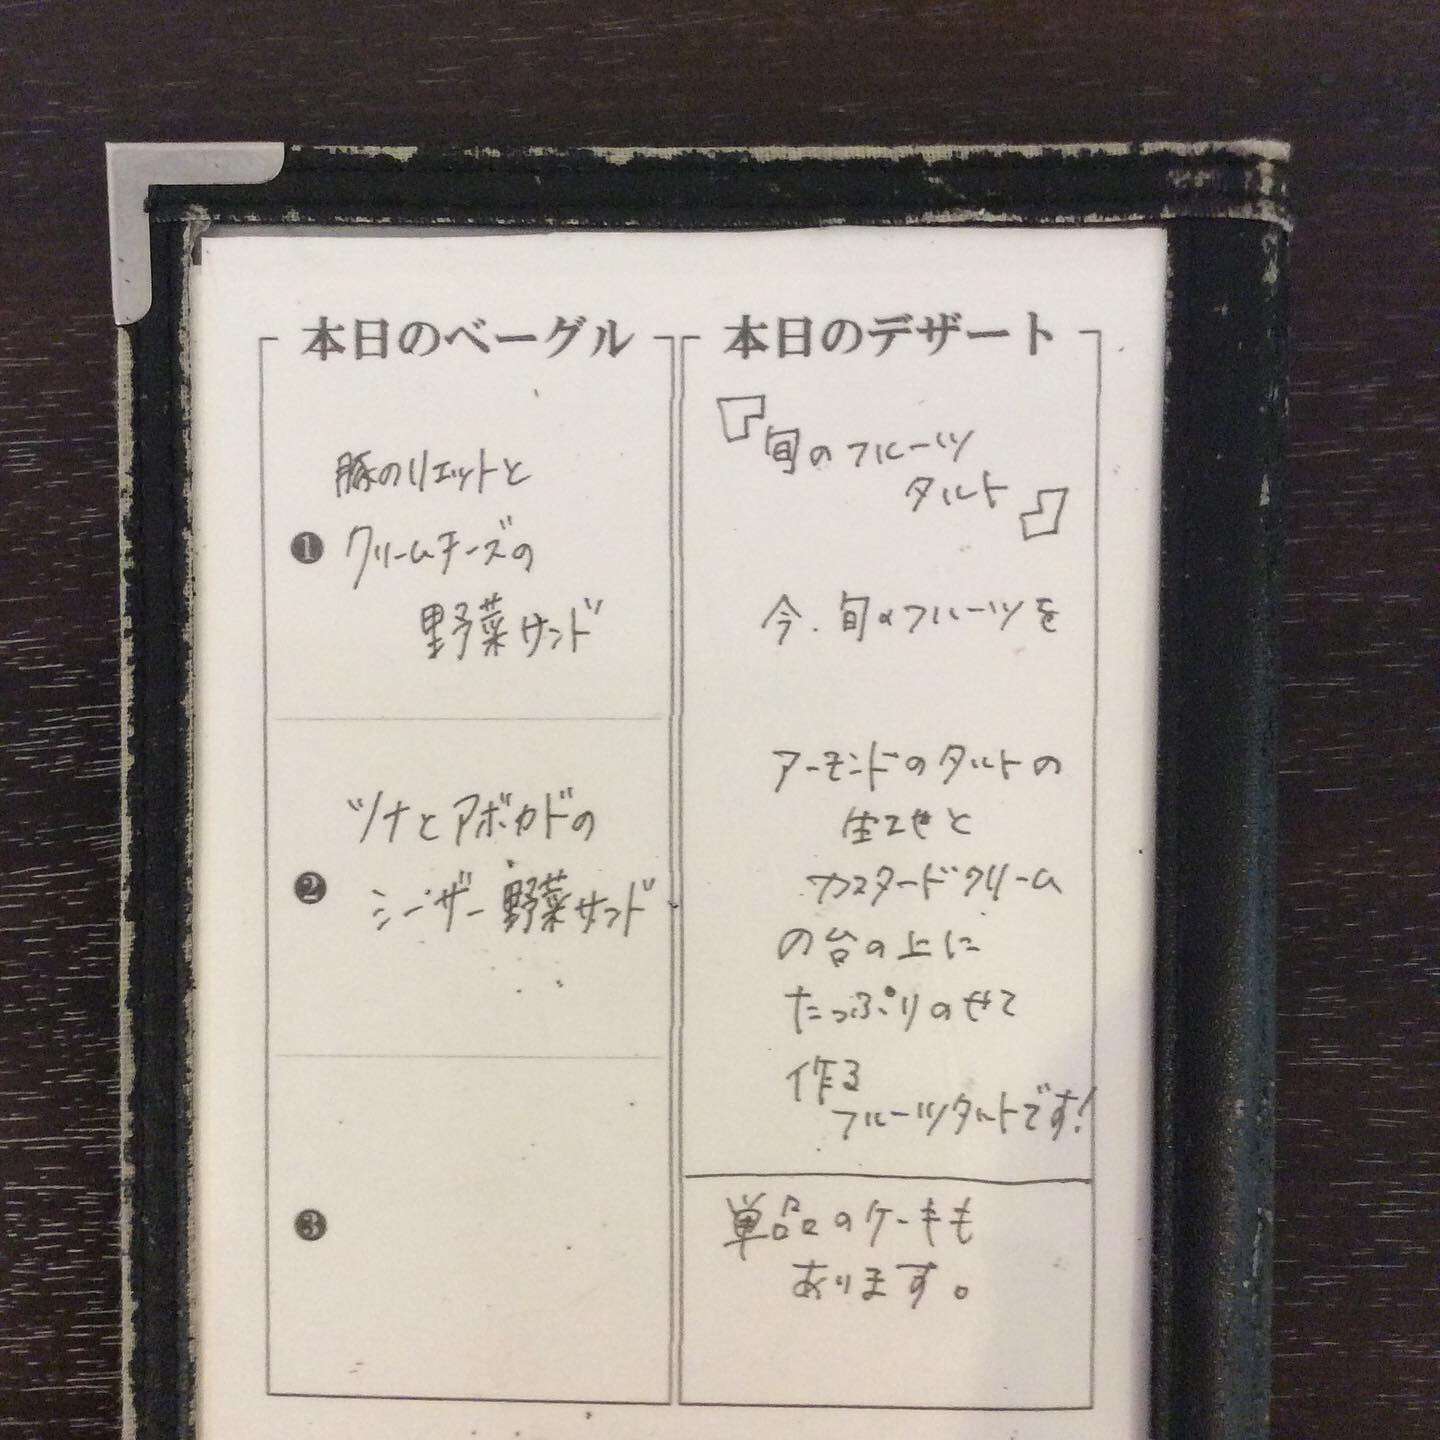 本日のベーグル
豚のリエットと
❶ クリームチーズの
野菜サンド
ツナとアボカドの
❷ シーザー野菜サンド
❸
本日のデザート
『旬のフルーツ
タルト』
今、旬のフルーツを
アーモンドのタルトの
生地と
カスタードクリーム
の台の上に
たっぷりのせて
作る
フルーツタルトです!
単品のケーキも
あります。